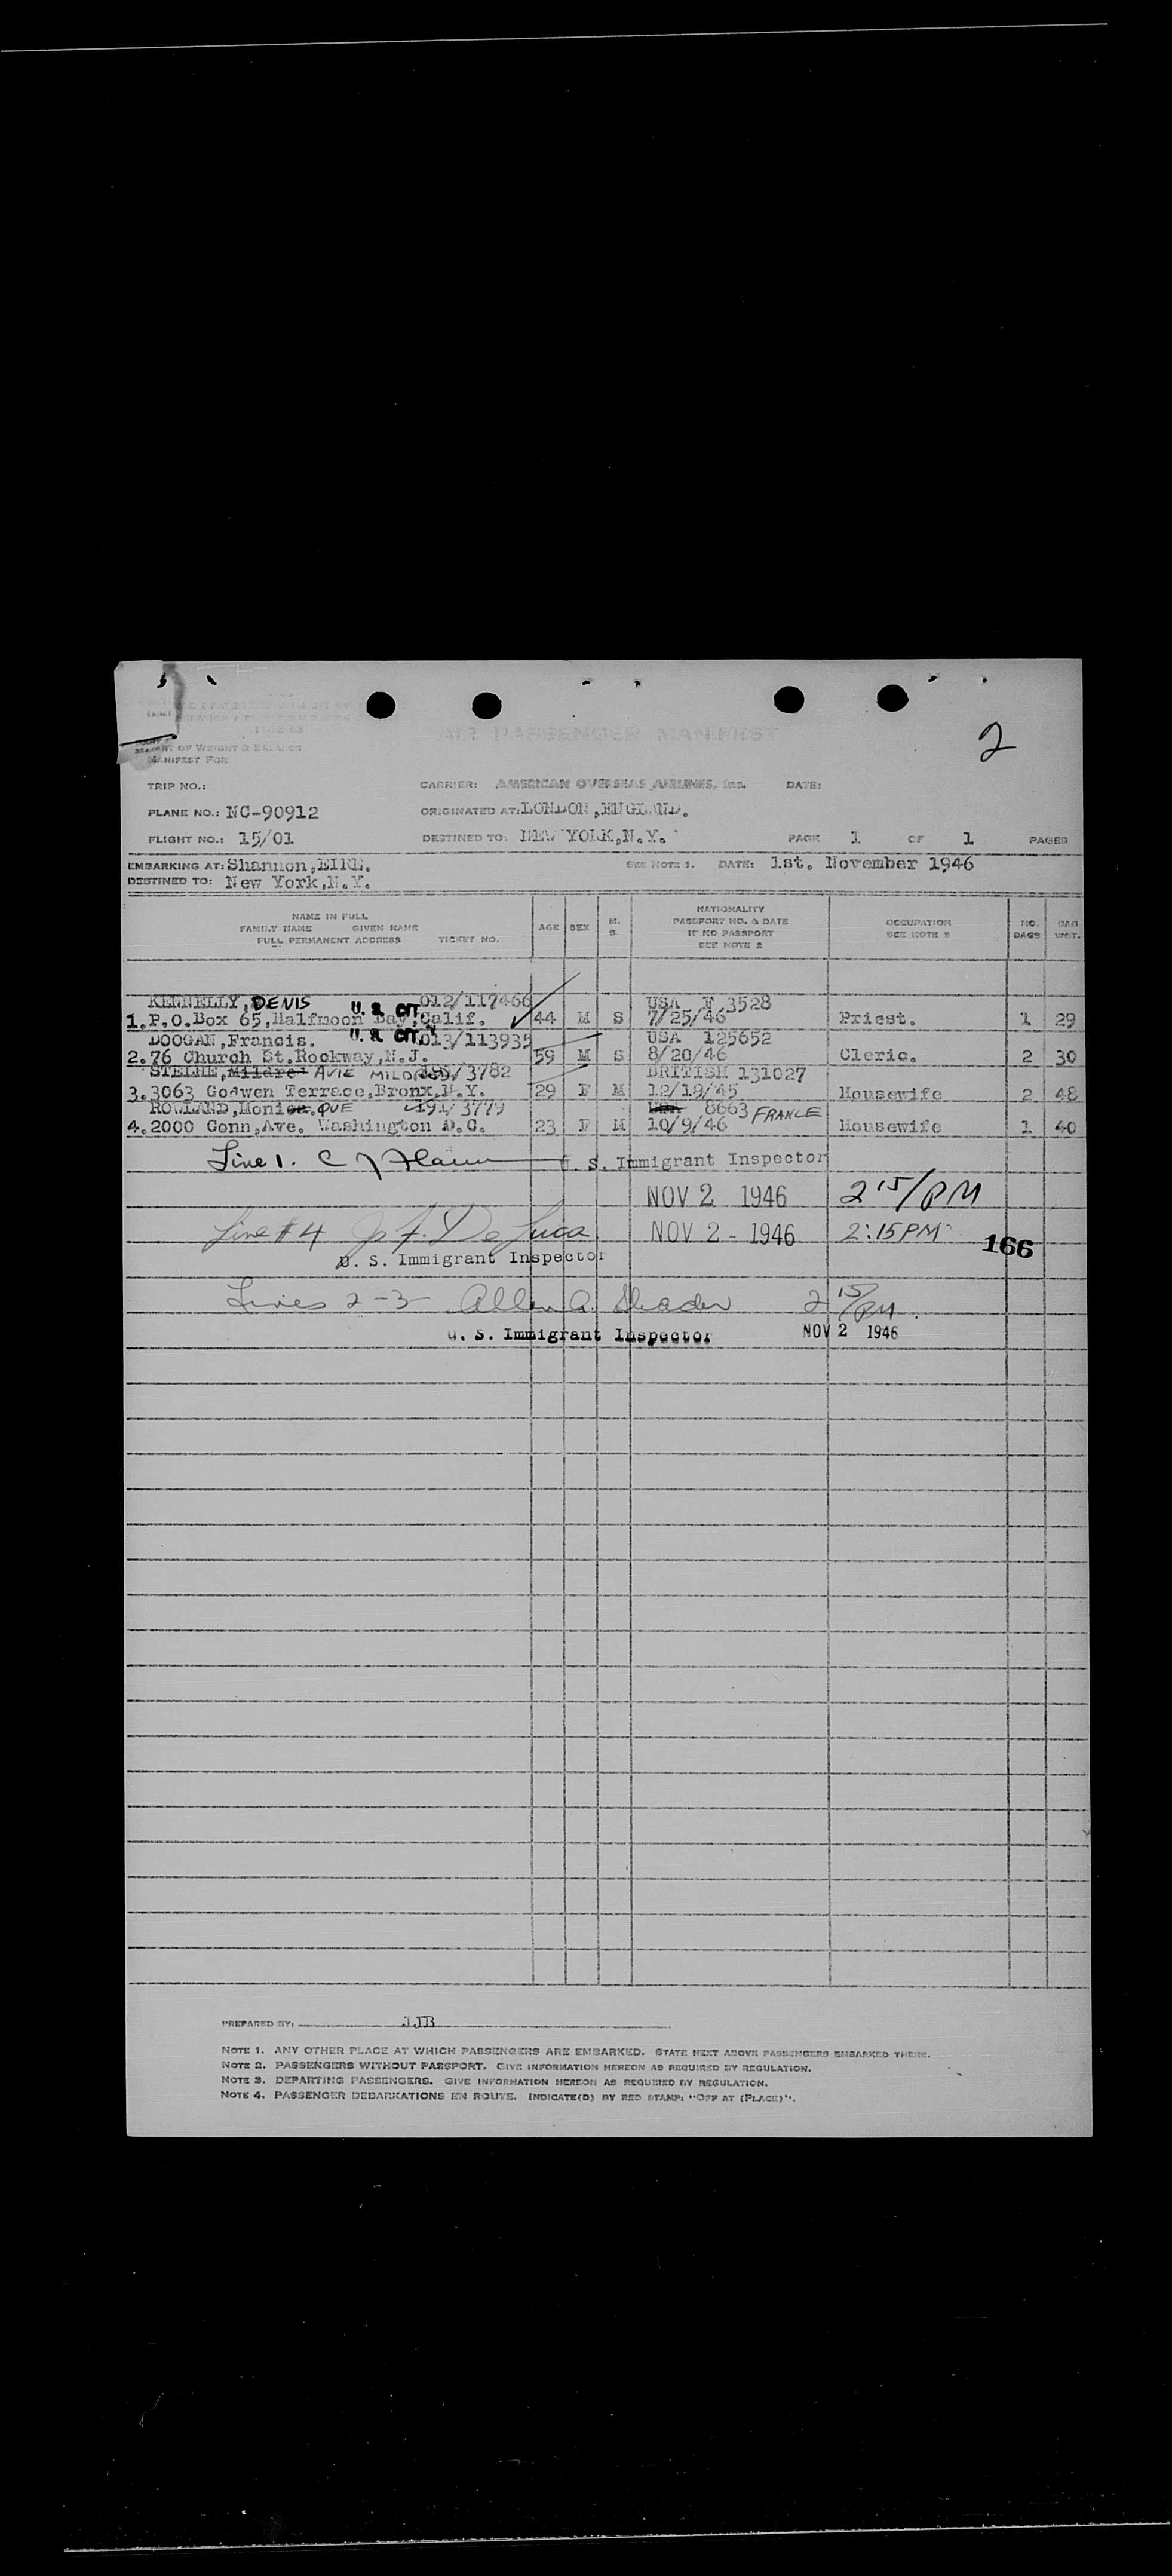 2
AIR PASSENGER MANIFEST
PART OF WEIGHT & BALANCE
MANIFEST FOR
TRIP NO.: CARRIER: AMERICAN OVERSEAS AIRLINES, Inc. DATE:
PLANE NO.: NC-90912 ORIGINATED AT: LONDON, ENGLAND.
FLIGHT NO.: 15/01 DESTINED TO: NEW YORK, N.Y. PAGE 1 OF 1 PAGES
EMBARKING AT: Shannon, EIRE. SEE NOTE 1. DATE: 1st. November 1946
DESTINED TO: New York, N.Y.
NAME IN FULL
FAMILY NAME GIVEN NAME
FULL PERMANENT ADDRESS TICKET NO. AGE SEX M. S. NATIONALITY PASSPORT NO. & DATE IF NO PASSPORT SEE NOTE 2 OCCUPATION SEE NOTE 3 NO. BAGS BAG WGT.
KENNELLY, DENIS U. S. CIT. 012/117466 USA F 3528
1. P.O.Box 65, Halfmoon Bay, Calif. 44 M S 7/25/46 Priest. 1 29
DOOGAN, Francis. U. S. CIT. 013/113935 USA 125652
2. 76 Church St. Rockway, N.J. 59 M S 8/20/46 Cleric. 2 30
Mildred AVIE MILDRED 3782 BRITISH 131027
3. 3063 Godwen Terrace, Bronx, N.Y. 29 F M 12/19/45 Housewife 2 48
ROWLAND, Monica. QUE 191/3779 8663 FRANCE
4. 2000 Conn, Ave. Washington D.C. 23 F M 10/9/46 Housewife 1 40
Line 1. U. S. Immigrant Inspector
NOV 2 1946 2 15/PM
Line #4 J. F. DeLuca NOV 2 - 1946 2:15 PM 166
U. S. Immigrant Inspector
Lines 2-3 Allen A. Shader 2 15/PM
U. S. Immigrant Inspector NOV 2 1946
PREPARED BY: JJB
NOTE 1. ANY OTHER PLACE AT WHICH PASSENGERS ARE EMBARKED. STATE NEXT ABOVE PASSENGERS EMBARKED THERE.
NOTE 2. PASSENGERS WITHOUT PASSPORT. GIVE INFORMATION HEREON AS REQUIRED BY REGULATION.
NOTE 3. DEPARTING PASSENGERS. GIVE INFORMATION HEREON AS REQUIRED BY REGULATION.
NOTE 4. PASSENGER DEBARKATIONS EN ROUTE. INDICATE(D) BY RED STAMP: "OFF AT (PLACE)".